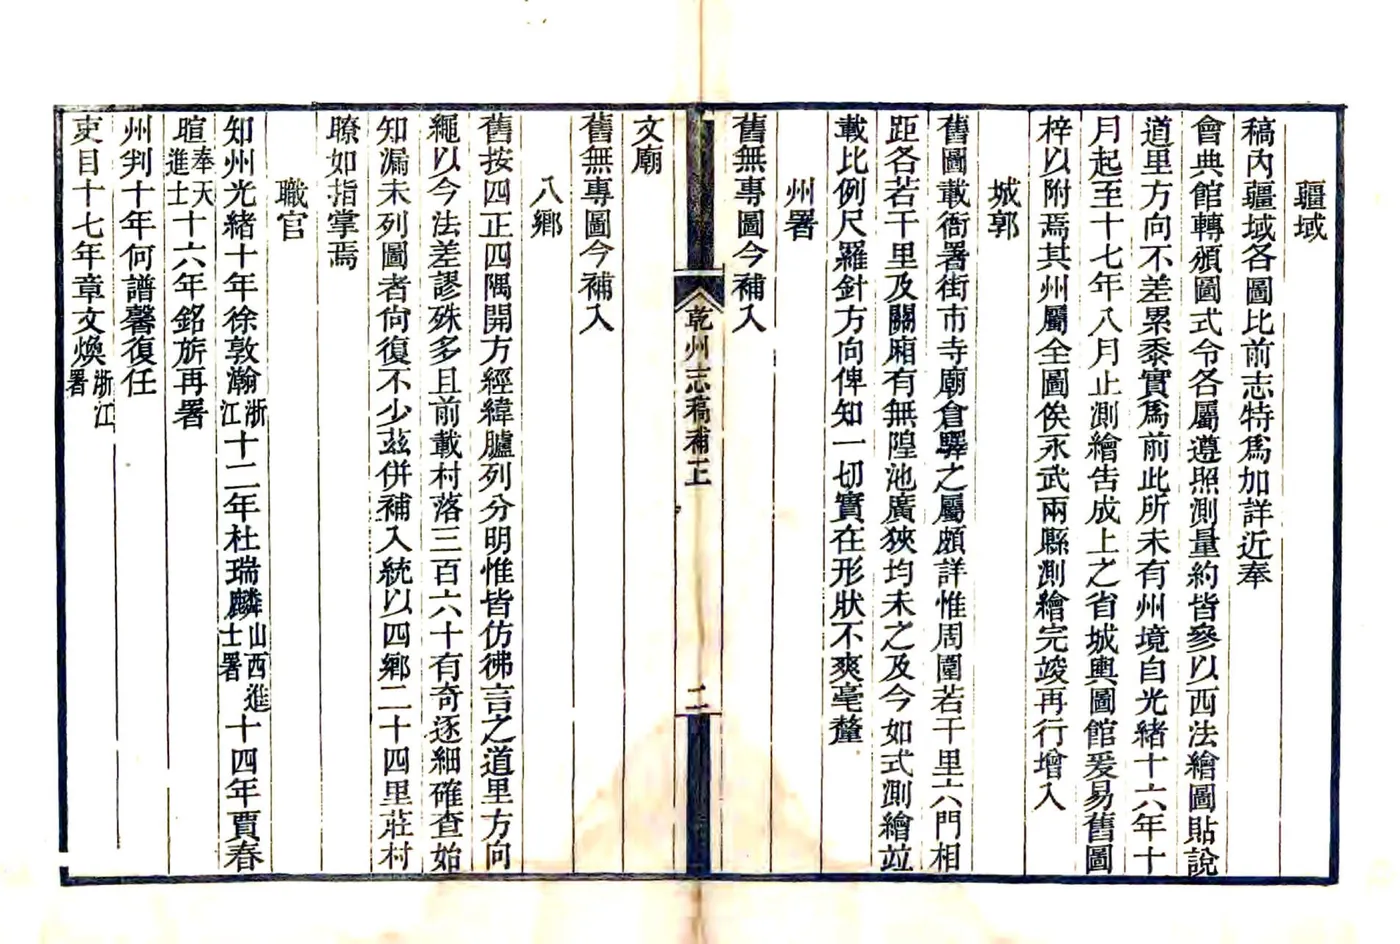 疆域
稿內疆域各圖比前志特爲加詳近奉
會典館轉頒圖式令各屬遵照測量約皆參以西法繪圖貼說
道里方向不差累黍實爲前此所未有州境自光緒十六年十
月起至十七年八月止測繪吿成上之省城輿圖館爰易舊圖
梓以附焉其州屬全圖俟永武兩縣測繪完竣再行增入
城郭
舊圖載衙署街市寺廟倉驛之屬頗詳惟周圍若干里六門相
距各若干里及關廂有無隍池廣狹均未之及今如式測繪竝
載比例尺羅針方向俾知一切實在形狀不爽毫釐
州署
舊無專圖今補入
乾州志稿補正
二
文廟
舊無專圖今補入
八鄉
舊按四正四隅開方經緯臚列分明惟皆仿彿言之道里方向
繩以今法差謬殊多且前載村落三百六十有奇逐細確查始
知漏未列圖者尙復不少茲併補入統以四鄉二十四里莊村
瞭如指掌焉
職官
知州光緒十年徐敦瀚浙江十二年杜瑞麟山西進士署十四年賈春
暄奉天進士十六年銘旂再署
州判十年何譜馨復任
吏目十七年章文煥浙江署